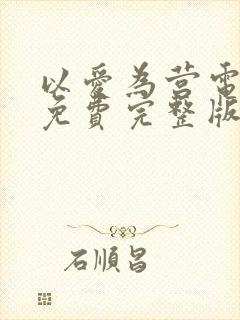 以愛為营電
免費完整版
石順昌